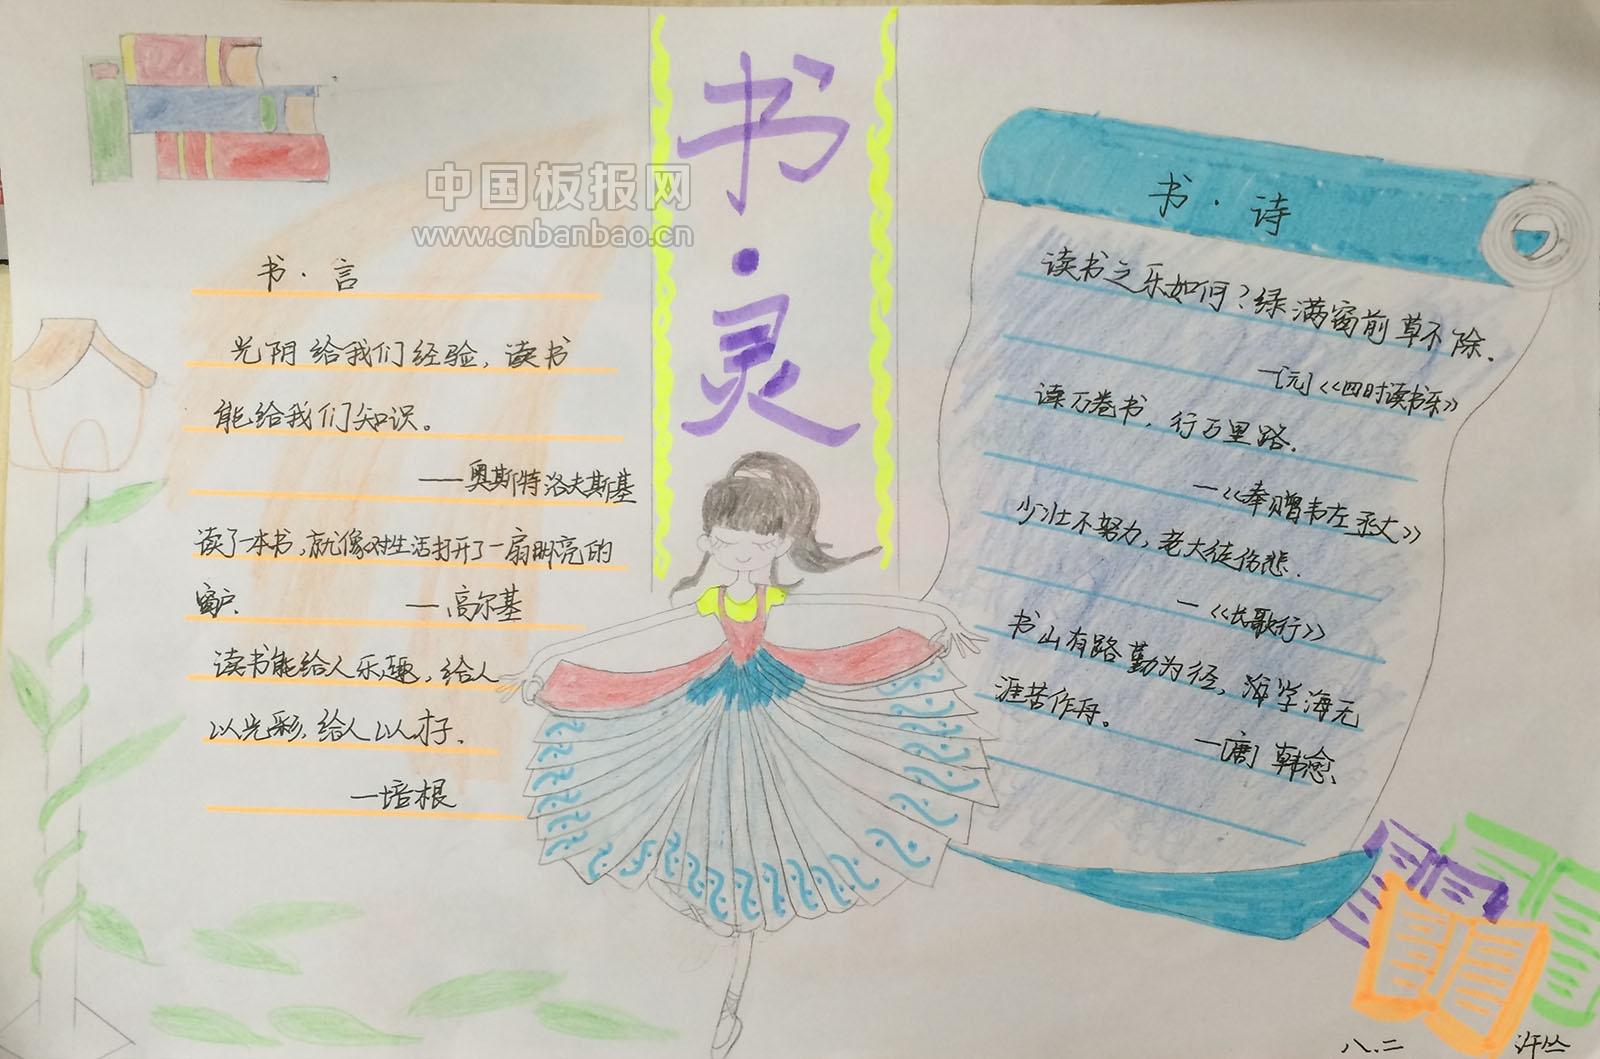 中国板报网
www.cnbanbao.cn
书·灵
书·言
光阴给我们经验，读书
能给我们知识。
——奥斯特洛夫斯基
读了一本书，就像对生活打开了一扇明亮的
窗户.
—高尔基
读书能给人乐趣，给人
以光彩，给人以才子.
—培根
书·诗
读书之乐如何？绿满窗前草不除.
—[元]《四时读书乐》
读万卷书，行万里路.
—《奉赠韦左丞丈》
少壮不努力，老大徒伤悲.
—《长歌行》
书山有路勤为径，海学海无
涯苦作舟。
—[唐] 韩愈
八.二